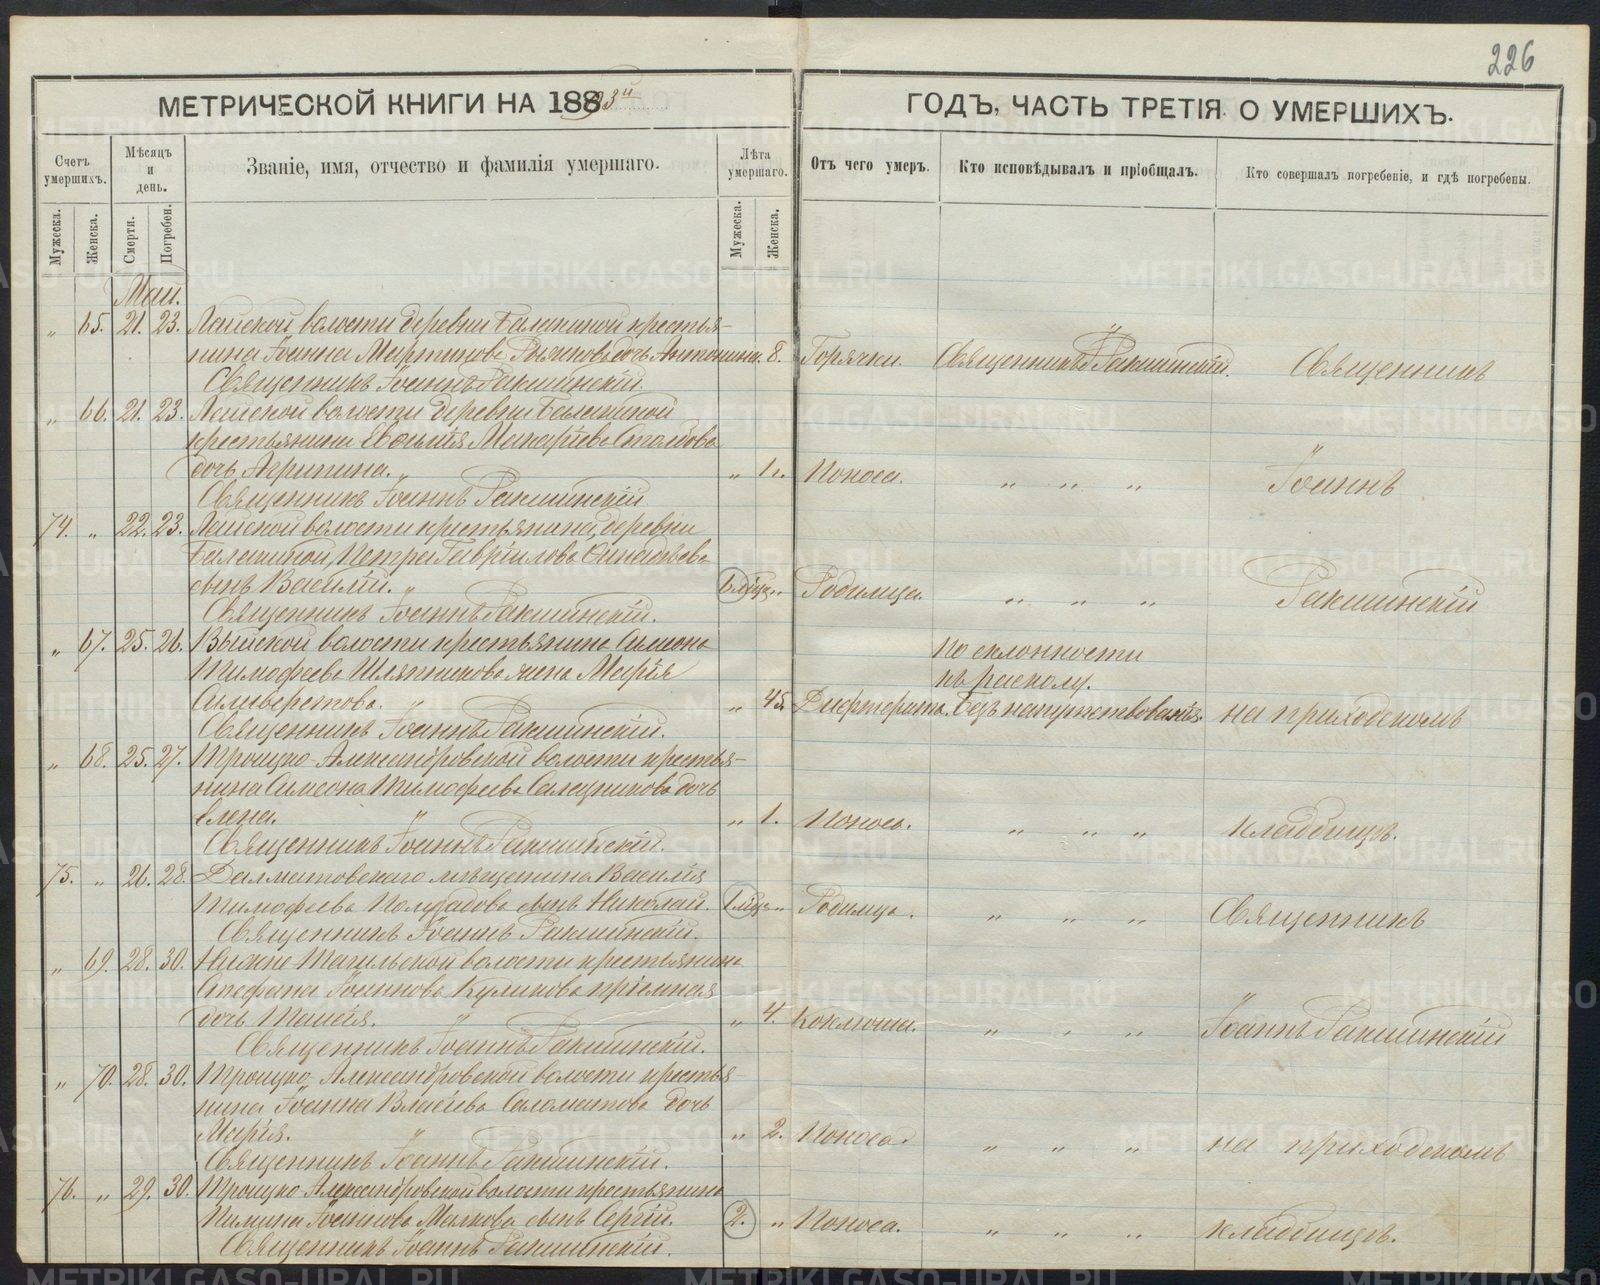 226
МЕТРИЧЕСКОЙ КНИГИ НА 1893й
ГОДЪ, ЧАСТЬ ТРЕТІЯ О УМЕРШИХЪ.
Счетъ умершихъ.
Мѣсяцъ и день.
Званіе, имя, отчество и фамилія умершаго.
Лѣта умершаго.
Отъ чего умеръ.
Кто исповѣдывалъ и пріобщалъ.
Кто совершалъ погребеніе, и гдѣ погребены.
Мужеска.
Женска.
Смерти.
Погребен.
Мужеска.
Женска.
Маи.
„ 65. 21. 23. Лайской волости деревни Балакиной крестья-
нина Іоанна Мартинова дочь Антонина. 8. Горячки. Священникъ І. Ракшинскій. Священникъ
Священникъ Іоаннъ Ракшинскій.
„ 66. 21. 23. Лайской волости деревни Балакиной
крестьянина Макаріева
дочь Агрипина. „ 1 г. Поноса. „ „ „ Іоаннъ
Священникъ Іоаннъ Ракшинскій
74. „ 22. 23. Лайской волости крестьянина, деревни
Балакиной, Петра Гавріилова
сынъ Василій. „ Родимца. „ „ „ Ракшинскій
Священникъ Іоаннъ Ракшинскій.
„ 67. 25. 26. Выйской волости крестьянина Симеона
По склонности
Тимофеева Шляпникова жена Марія
къ расколу.
Силиверстова. „ 45. Дифтерита. Безъ напутствованія. на приходскомъ
Священникъ Іоаннъ Ракшинскій.
„ 68. 25. 27. Троицко-Александровской волости крестья-
нина Симеона Тимофеева дочь
Елена. „ 1. Поноса. „ „ „ кладбищѣ.
Священникъ Іоаннъ Ракшинскій.
75. „ 26. 28. Далматовскаго мѣщанина Василія
Тимофеева сынъ Николай. „ Родимца. „ „ „ Священникъ
Священникъ Іоаннъ Ракшинскій.
„ 69. 28. 30. Нижне Тагильской волости крестьянина
Стефана Іоаннова Куликова пріемная
дочь Таисія. „ 4. Коклюша. „ „ „ Іоаннъ Ракшинскій
Священникъ Іоаннъ Ракшинскій.
„ 70. 28. 30. Троицко Александровской волости крестья-
нина Іоанна Власіева Саломатова дочь
Марія. „ 2. Поноса. „ „ „ на приходскомъ
Священникъ Іоаннъ Ракшинскій.
76. „ 29. 30. Троицко Александровской волости крестьянина
Іоаннова Малкова сынъ Сергій. 2. „ Поноса. „ „ „ кладбищѣ.
Священникъ Іоаннъ Ракшинскій.
METRIKI.GASO-URAL.RU